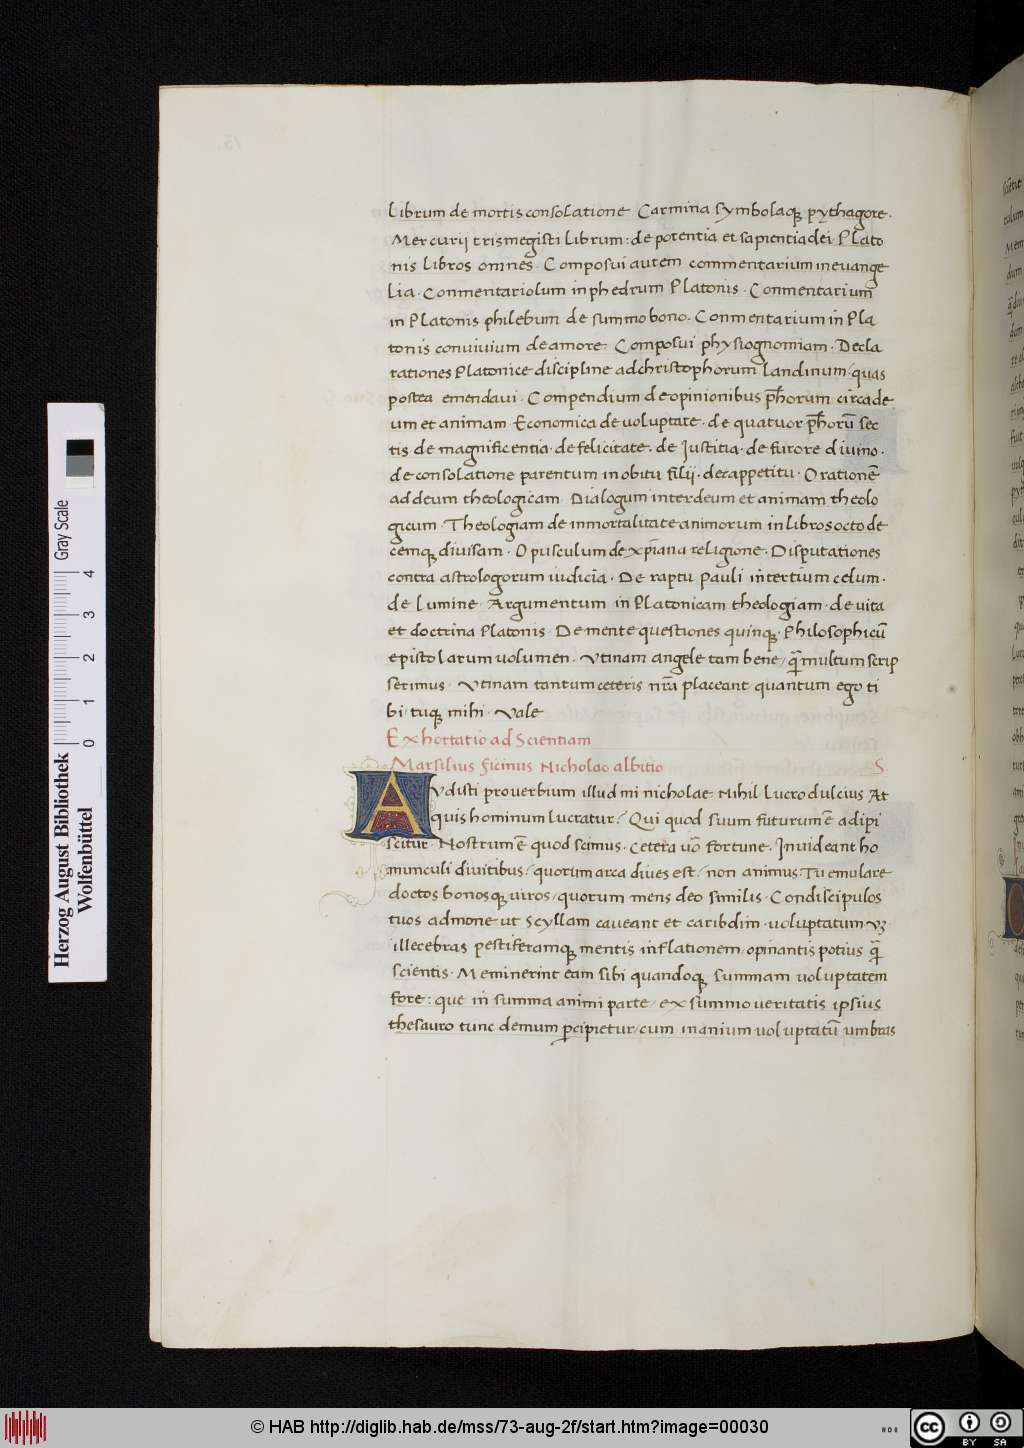 Librum de mortis consolatione Carmina symbolaqꝫ pythagore.
Mercurij trismegisti librum: de potentia et sapientia dei. Plato
nis libros omnes. Composui autem commentarium in evange
lia. Conmentariolum in phedrum Platonis. Conmentarium
in Platonis philebum de summo bono. Conmentarium in Pla
tonis convivium de amore. Composui physiognomiam. Decla
rationes Platonice discipline ad christophorum landinum/ quas
postea emendavi. Compendium de opinionibus ph̄orum circa de
um et animam. Economica de voluptate. de quatuor ph̄orū sec
tis de magnificentia. de felicitate. de Justitia. de furore divino.
de consolatione parentum in obitu filij. de rappetitu. Orationē
ad deum theologicam. Dialogum inter deum et animam theolo
gicum. Theologiam de inmortalitate animorum in libros octo de
cemqꝫ divisam. Opusculum de xp̄iana religione. Disputationes
contra astrologorum iudicia. De raptu Pauli in tertium celum.
de lumine. Argumentum in Platonicam theologiam. de vita
et doctrina Platonis. De mente questiones quinqꝫ. Philosophicū
epistolarum volumen. Vtinam angele tam bene/ q̄ multum scrip
serimus. Vtinam tantum ceteris nr̄a placeant quantum ego ti
bi. tuqꝫ mihi. Vale
Exhortatio ad Scientiam
Marsilius ficinus Nicholao albitio S.
AVdisti proverbium illud mi nicholae. Nihil lucro dulcius At
quis hominum lucratur? Qui quod suum futurum ē adipi
scitur. Nostrum ē quod scimus. cetera vō fortune. Invideant ho
munculi divitibus/ quorum arca dives est/ non animus. Tu emulare
doctos bonosqꝫ viros/ quorum mens deo similis. Condiscipulos
tuos admone ut Scyllam caveant et caribdim. voluptatum vꝫ
illecebras pestiferamqꝫ mentis inflationem/ opinantis potius q̄
scientis. Meminerint eam sibi quandoqꝫ summam voluptatem
fore: que in summa animi parte/ ex summo veritatis ipsius
thesauro tunc demum ꝑcipietur/ cum inanium voluptatū umbras
Herzog August Bibliothek
Wolfenbüttel
Gray Scale
0 1 2 3 4
© HAB http://diglib.hab.de/mss/73-aug-2f/start.htm?image=00030
cc BY SA